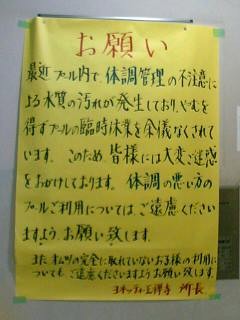 お願い
最近プール内で、体調管理の不注意に
よる水質の汚れが発生しており、やむを
得ずプールの臨時休業を余儀なくされて
います。このため、皆様には大変ご迷惑
をおかけしております。体調の悪い方の
プールご利用については、ご遠慮ください
ますよう、お願い致します。
また オムツの完全に取れていないお子様の利用に
ついても、ご遠慮くださいますようお願い致します。
ヨネッティー王禅寺 所長